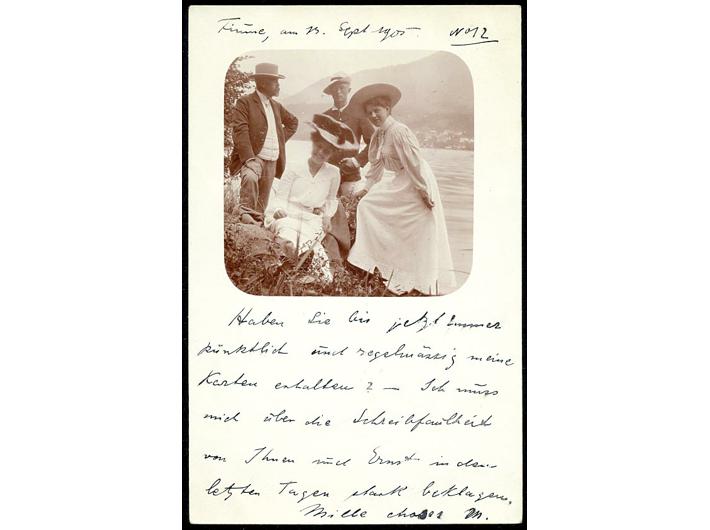 Fiume, am 13. Sept 1905. No 12
Haben Sie bis jetzt immer
pünktlich und regelmässig meine
Karten erhalten? — Ich muss
mich über die Schreibfaulheit
von Ihnen und Ernst in den
letzten Tagen stark beklagen.
Mille choses M.